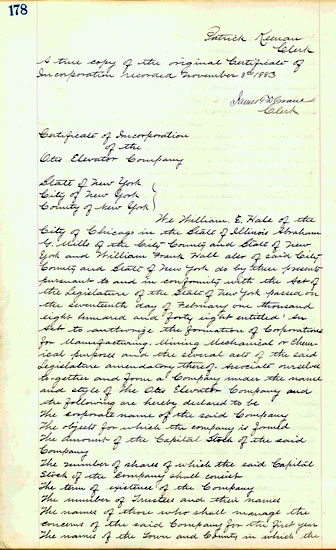 178
Patrick Keenan
Clerk
A true copy of the original Certificate of
Incorporation recorded November 8th 1883
Clerk
Certificate of Incorporation
of the
Otis Elevator Company
State of New York
City of New York
County of New York
We William E. Hale of the
City of Chicago in the State of Illinois Abraham
G. Mills of the City County and State of New
York and William Frank Hall also of said City
County and State of New York do by these presents
pursuant to and in conformity with the Act of
the Legislature of the State of New York passed on
the seventeenth day of February one thousand
eight hundred and forty eight entitled "An
Act to authorize the formation of Corporations
for Manufacturing, Mining Mechanical or Chem-
ical purposes and the several acts of the said
Legislature amendatory thereof, associate ourselves
together and form a Company under the name
and style of The Otis Elevator Company and
the following are hereby declared to be
The corporate name of the said Company
The objects for which the company is formed
The amount of the Capital Stock of the said
Company
The number of shares of which the said Capital
Stock of the Company shall consist
The term of existence of the Company
The number of Trustees and their names
The names of those who shall manage the
concerns of the said Company for the first year
The names of the Town and County in which the